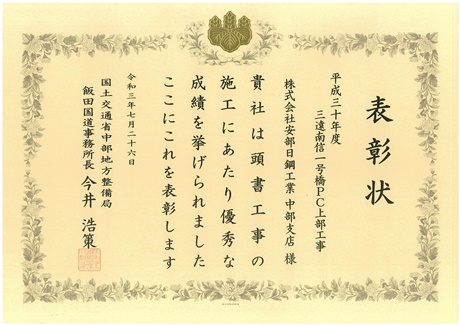 表彰状
平成三十年度
三遠南信一号橋PC上部工事
株式会社安部日鋼工業 中部支店 様
貴社は頭書工事の
施工にあたり優秀な
成績を挙げられました
ここにこれを表彰します
令和三年七月二十六日
国土交通省中部地方整備局
飯田国道事務所長 今井 浩策